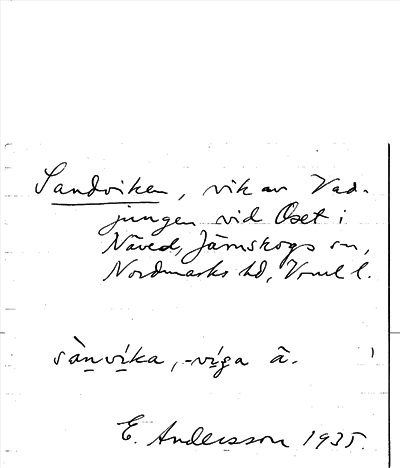 Sandviken, vik av Vad-
jungen vid Oset i
Näved, Järnskogs sn,
Nordmarks hd, Vrml l.
sànvíka, -víga ā.
E. Andersson 1935.